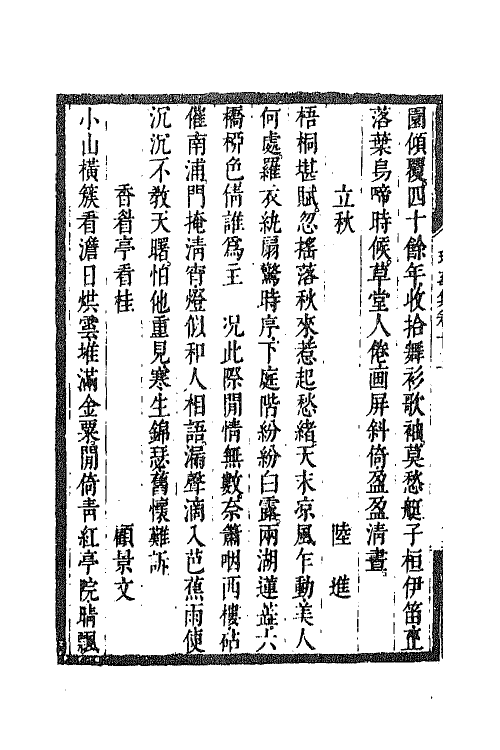 園傾覆四十餘年收拾舞衫歌袖莫愁艇子桓伊笛正
落葉烏啼時候草堂人倦画屏斜倚盈盈清晝
立秋　陸進
梧桐堪賦忽搖落秋來惹起愁緒天末凉風乍動美人
何處羅衣紈扇驚時序下庭階紛紛白露兩湖蓮蕋六
橋柳色倩誰爲主　況此際閒情無數奈簫咽西樓砧
催南浦門掩清宵燈似和人相語漏聲滴入芭蕉雨使
沉沉不教天曙怕他重見寒生錦瑟舊懷難訴
香眢亭看桂　顧景文
小山橫簇看澹日烘雲堆滿金粟閒倚靑紅亭院晴飄